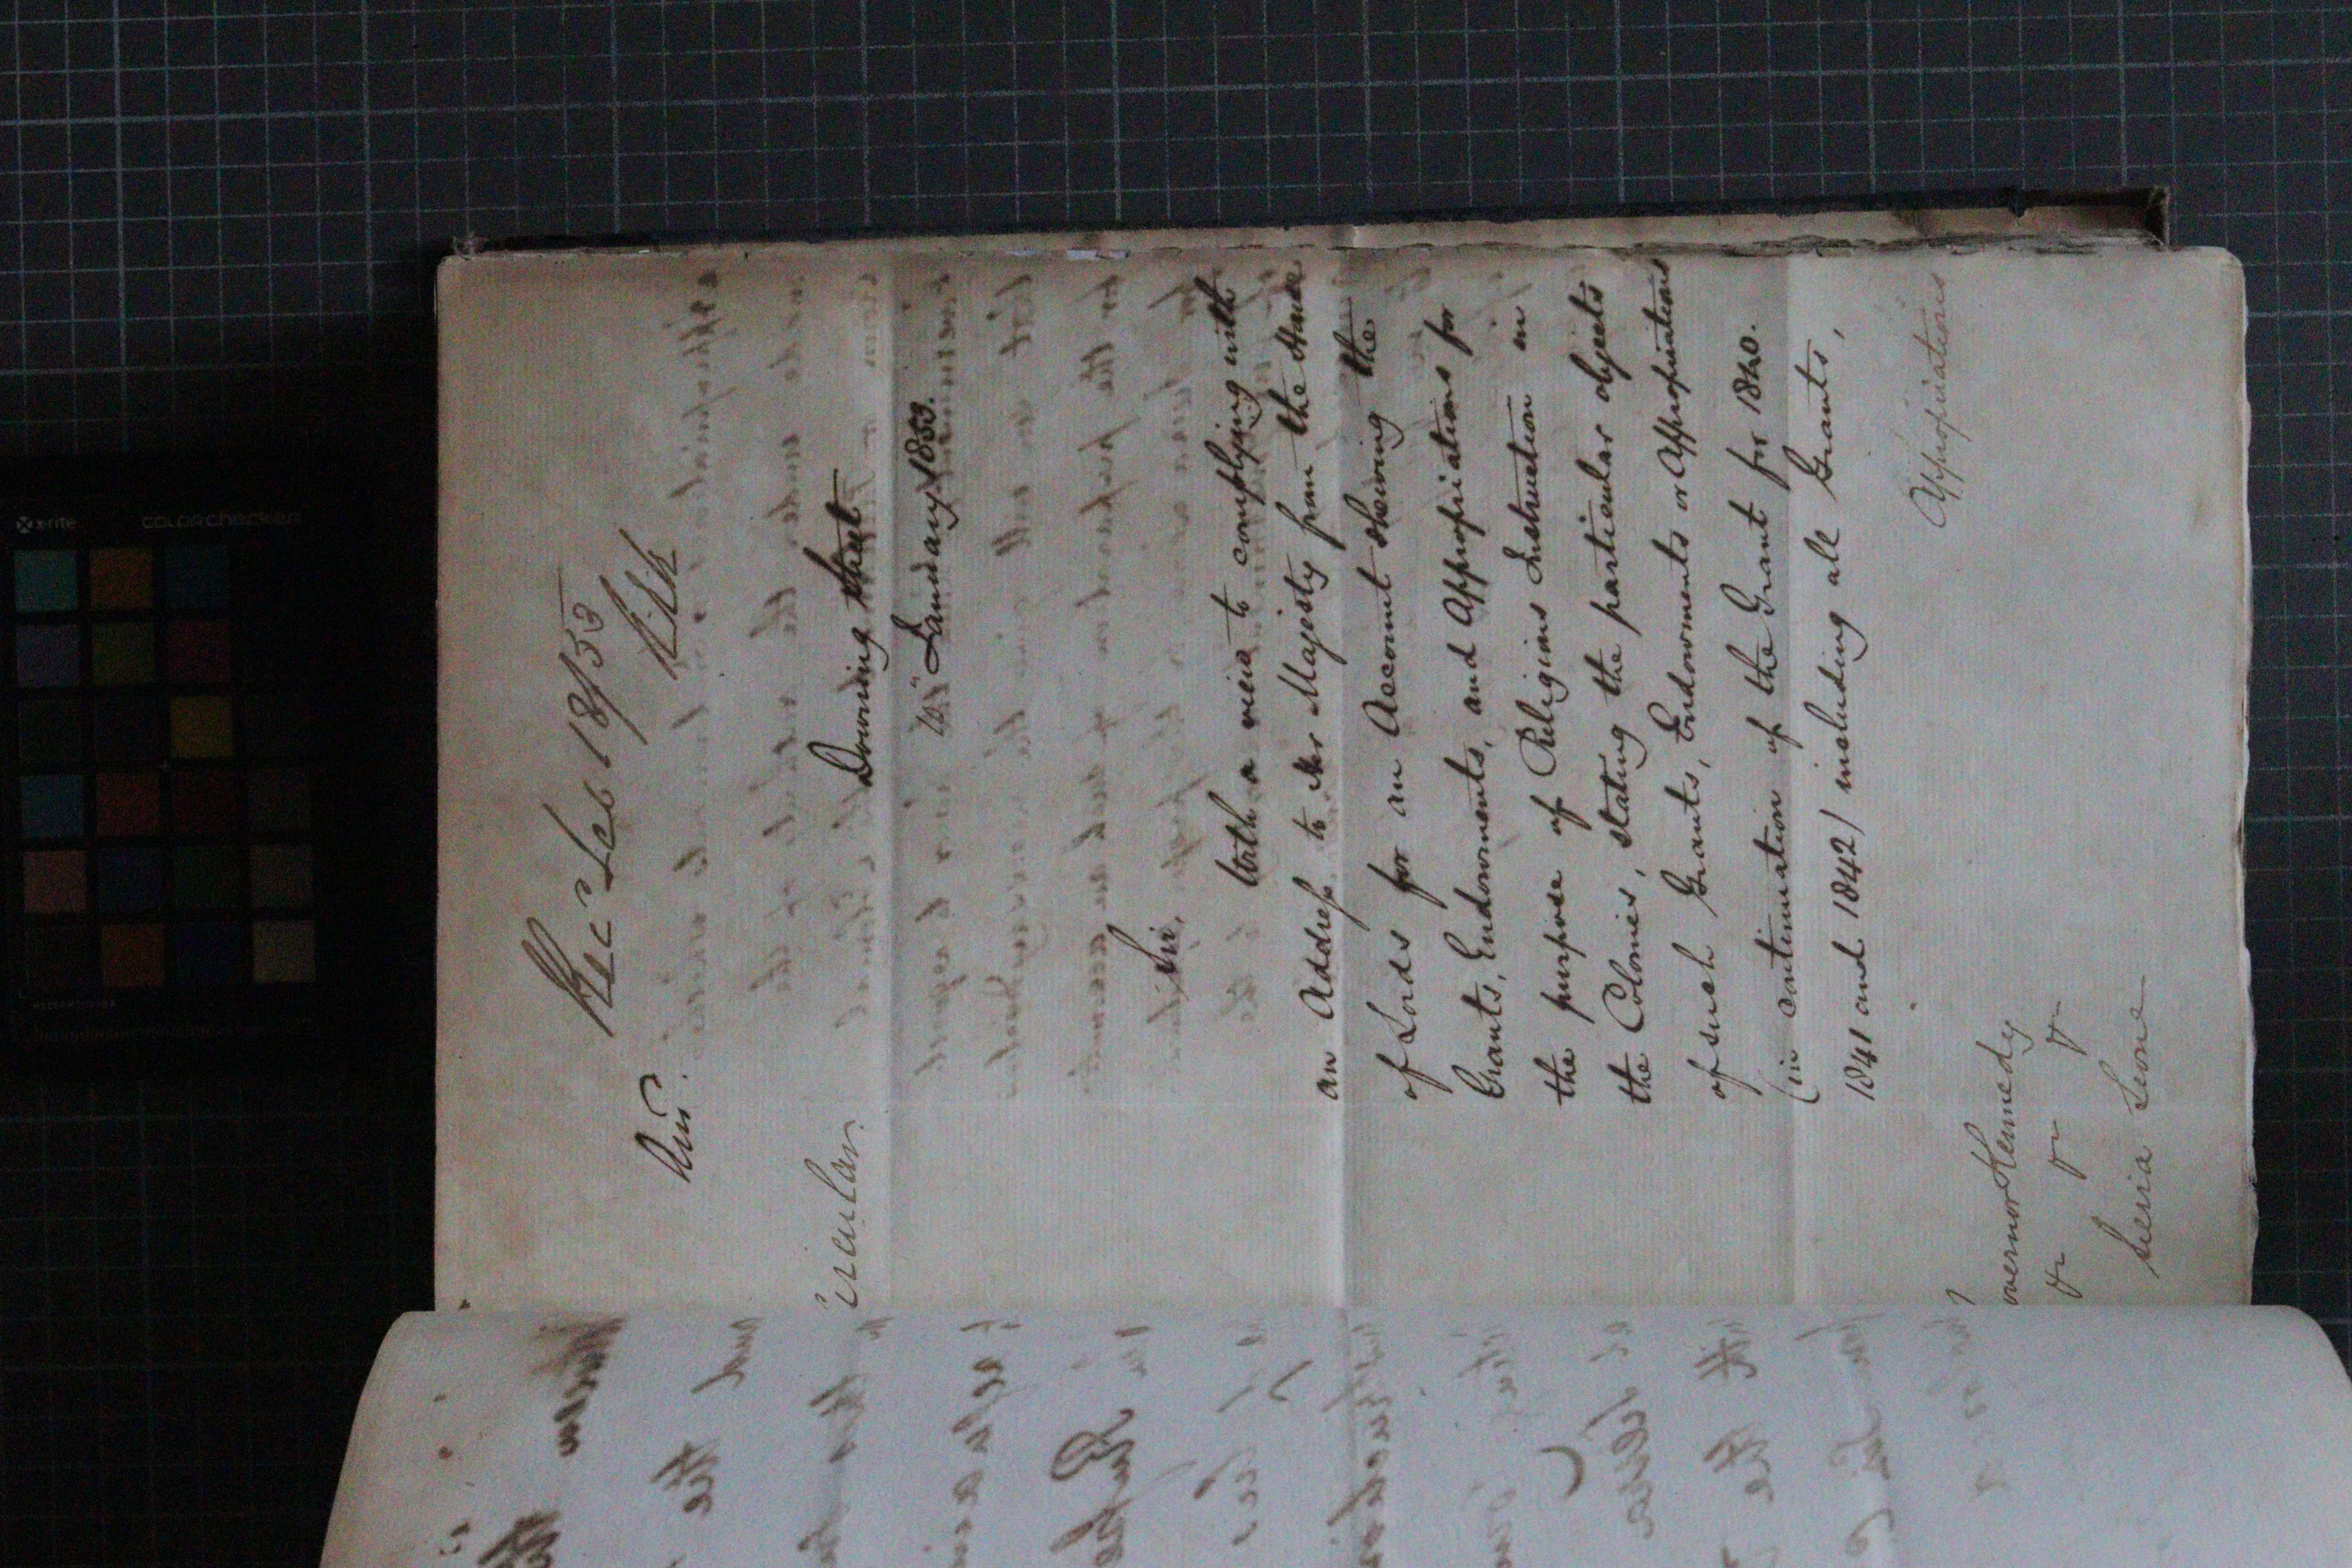 Recd Feb 18/53
Ansd.
Circular.
Downing Street
10" January 1853.
Sir,
With a view to complying with
an Address to Her Majesty from the House
of Lords for an Account shewing the
Grants, Endowments, and Appropriations for
the purpose of Religious Instruction in
the Colonies, stating the particular objects
of such Grants, Endowments or Appropriations
(in continuation of the Grant for 1840.
1841 and 1842) including all Grants,
Appropriations
overnor Kennedy
&c &c &c
Sierra Leone
x-rite
colorchecker